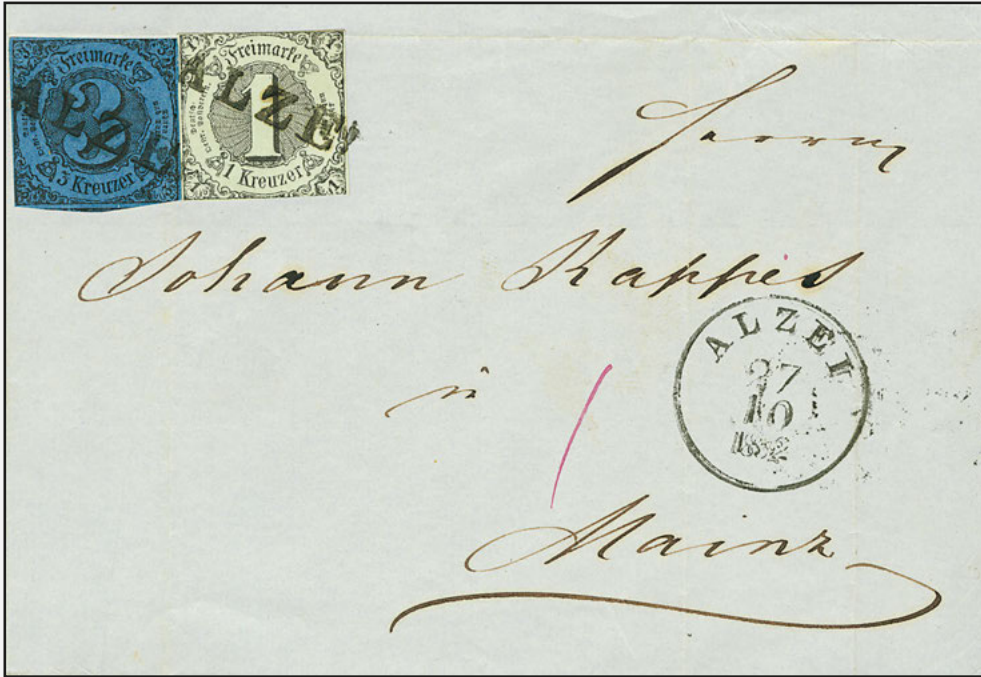 Freimarke
3
3 Kreuzer
ALZEY
Freimarke
1
1 Kreuzer
ALZEY
Herrn
Johann Kappes
in
Mainz
ALZEY
27
10
1852